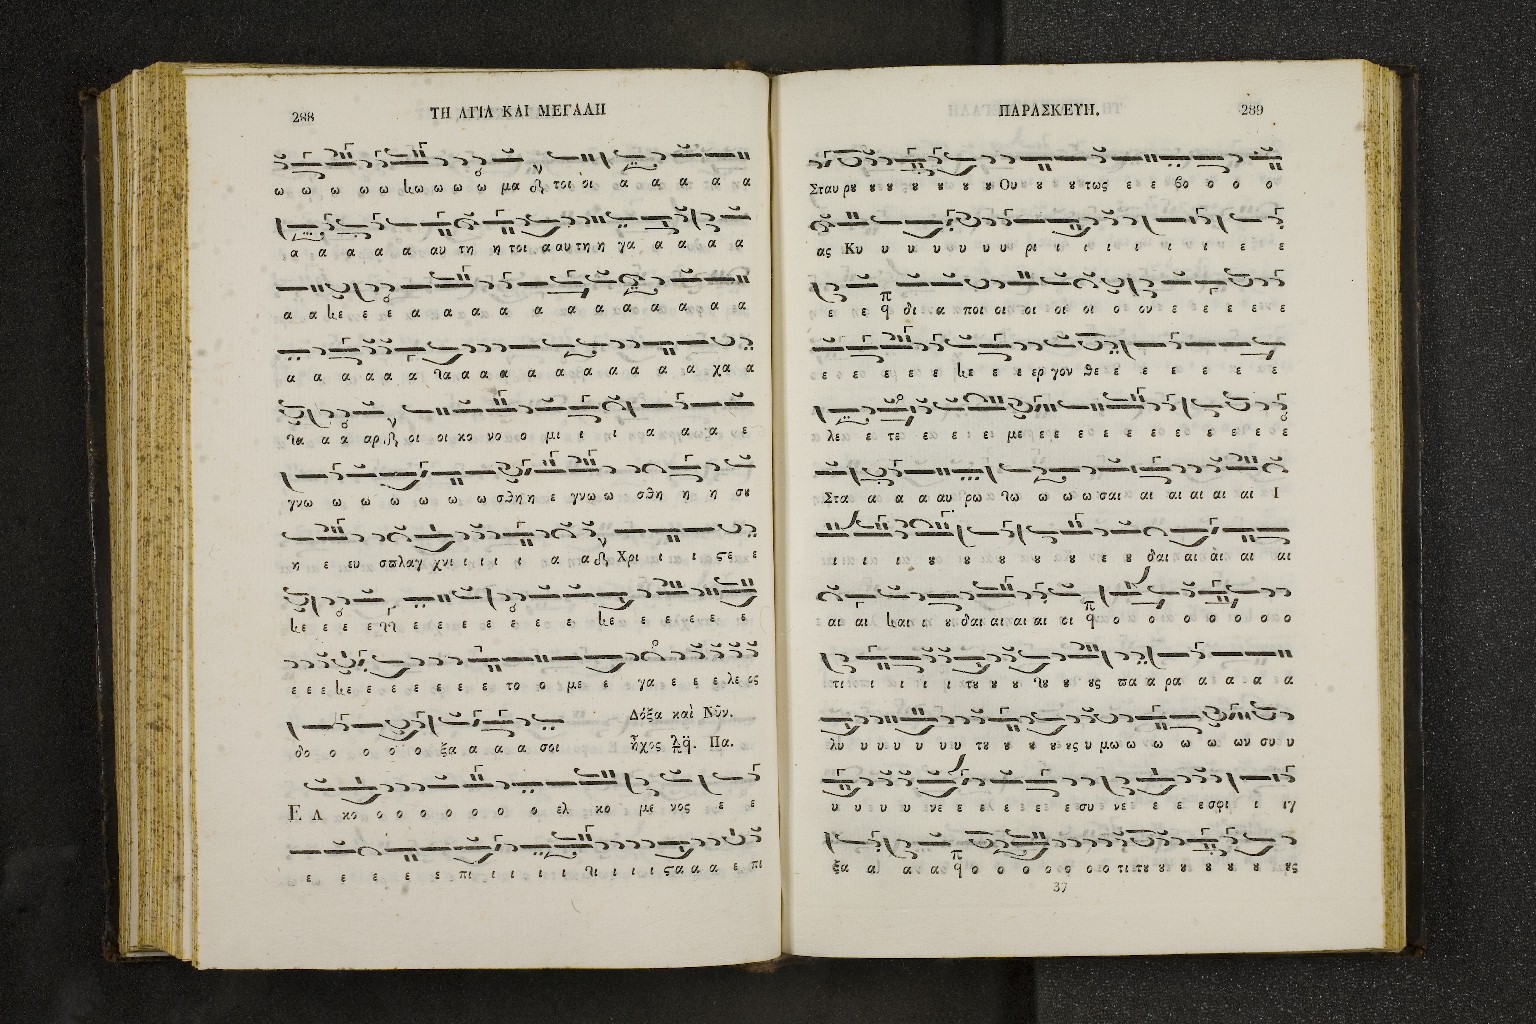 288
ΤΗ ΑΓΙΑ ΚΑΙ ΜΕΓΑΛΗ
ω ω ω ω ω κω ω ω ω μα τοι οι α α α α α
α α α α α αυ τη η τοι α αυ τη η γα α α α α
α α κε ε ε α α α α α α α α α α α α
α α α α α α γα α α α α α α α α α α χα α
γα α α αρ οι οι κο νο ο μι ι ι α α α ε
γνω ω ω ω ω ω ω ω σθη η ε γνω ω σθη η η σȣ
η ε ευ σπλαγ χνι ι ι ι ι α α Χρι ι ι ι ϛε ε
κε ε ε ε ε ε ε ε ε ε ε κε ε ε ε ε ε
ε ε ε κε ε ε ε ε ε ε ε το ο με ε γα ε ε ε λε ος
Δόξα καὶ Νῦν.
δο ο ο ο ο ο ξα α α α α σοι ἦχος Πα.
Ε Λ κο ο ο ο ο ο ο ο ελ κο με νος ε ε
ε ε ε ε ε πι ι ι ι ι γι ι ι ι ϛα α α α ε πι
ΠΑΡΑΣΚΕΥΗ.
289
Σταυ ρȣ ȣ ȣ ȣ ȣ ȣ ȣ Ου ȣ ȣ ȣ τως ε ε βο ο ο ο
ας Κυ υ υ υ υ υ υ υ ρι ι ι ι ι ι ι ι ε ε
ε ε δι α ποι οι οι οι οι ο ον ε ε ε ε ε
ε ε ε ε ε κε ε ε ερ γον θε ε ε ε ε ε ε ε
λε ε τε ε ε ε ε με ε ε ε ε ε ε ε ε ε ε ε
Στα α α α αυ ρω γω ω ω ω σαι αι αι αι αι αι Ι
ι ι ι ι ȣ ȣ ȣ ȣ ȣ ȣ ε ȣ δαι αι αι αι αι
αι αι και ι ȣ δαι αι αι αι οι ο ο ο ο ο ο ο ο
τι ι ι ι ι τȣ ȣ ȣ γȣ ȣ ȣς πα α ρα α α α α
λυ υ υ υ υ υ υ τȣ ȣ ȣ ȣ ȣς υ μω ω ω ω ω ων συ υ
υ υ υ υ υ νε ε ε ε ε ε ε συ νε ε ε ε σφι ι ιγ
ξα α α α ο ο ο ο ο ο ο τι τȣ ȣ ȣ ȣ ȣ ȣ ȣς
37